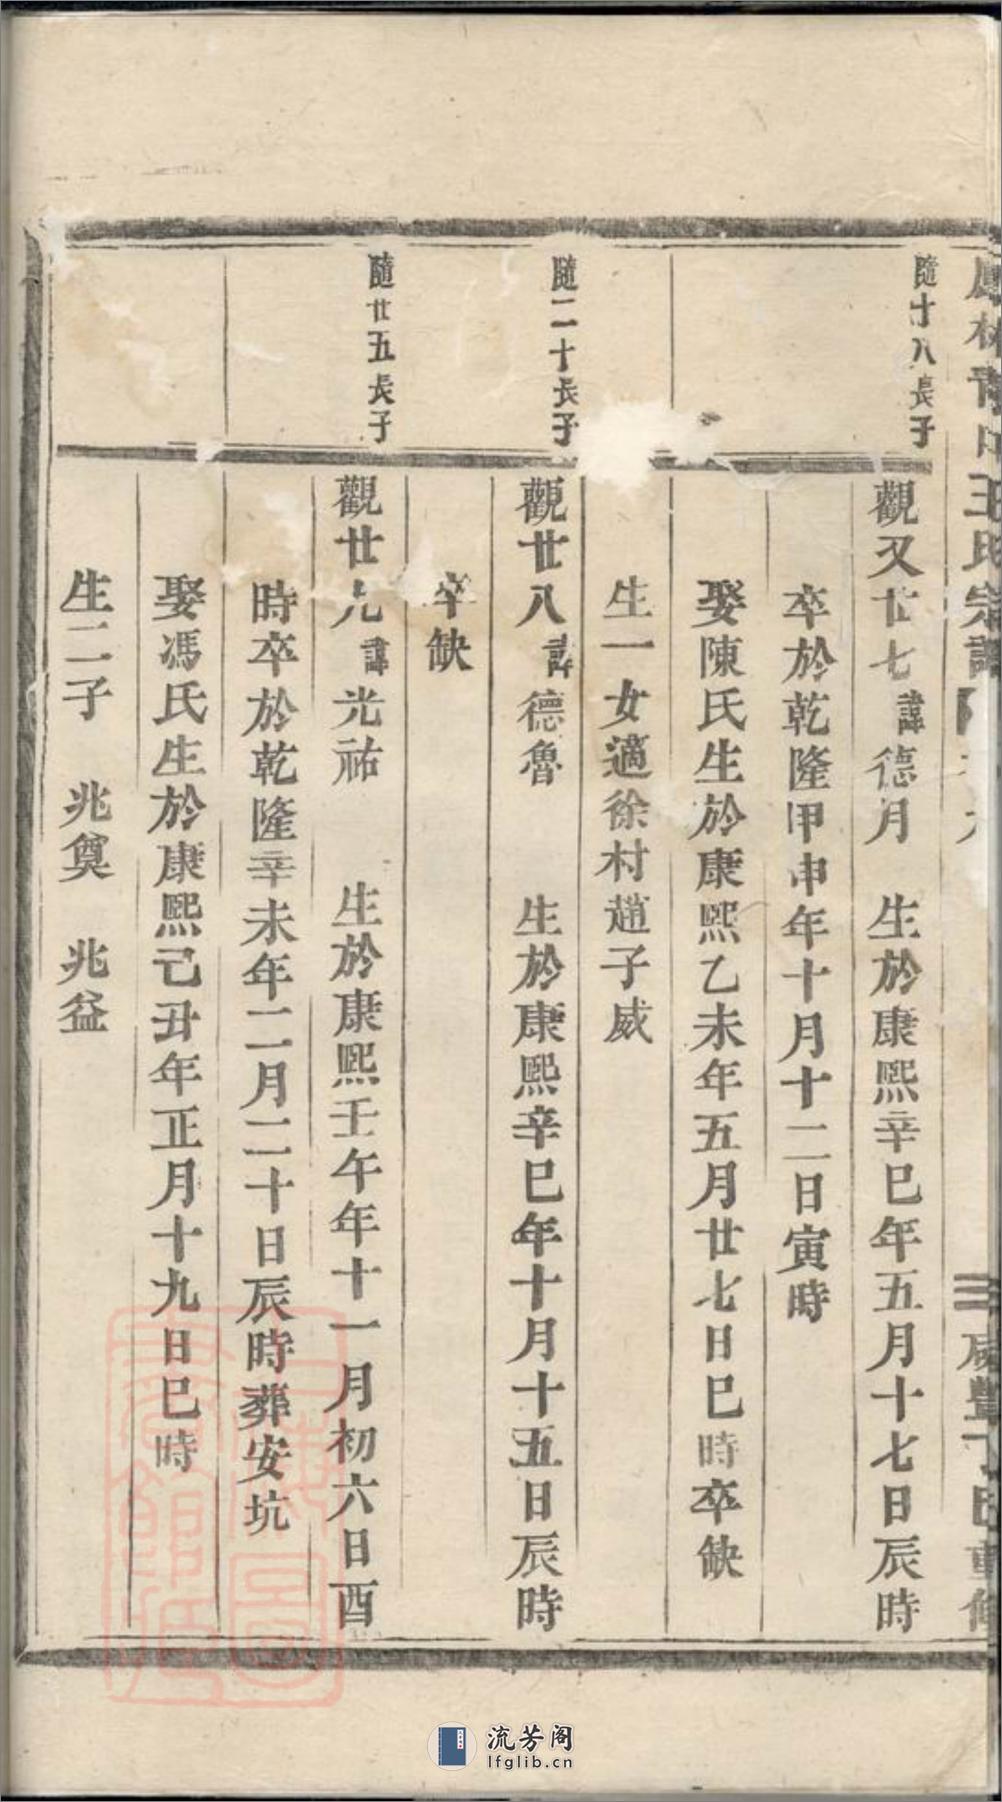 鳳林
王氏宗譜
咸豐丁巳重修
隨十八長子
觀又廿七諱德月 生於康熙辛巳年五月十七日辰時
卒於乾隆甲申年十月十二日寅時
娶陳氏生於康熙乙未年五月廿七日巳時卒缺
生一女適徐村趙子威
隨二十長子
觀廿八諱德魯 生於康熙辛巳年十月十五日辰時
卒缺
隨廿五長子
觀廿九諱光祐 生於康熙壬午年十一月初六日酉
時卒於乾隆辛未年二月二十日辰時葬安坑
娶馮氏生於康熙己丑年正月十九日巳時
生二子 兆奠 兆益
流芳阁
lfglib.cn